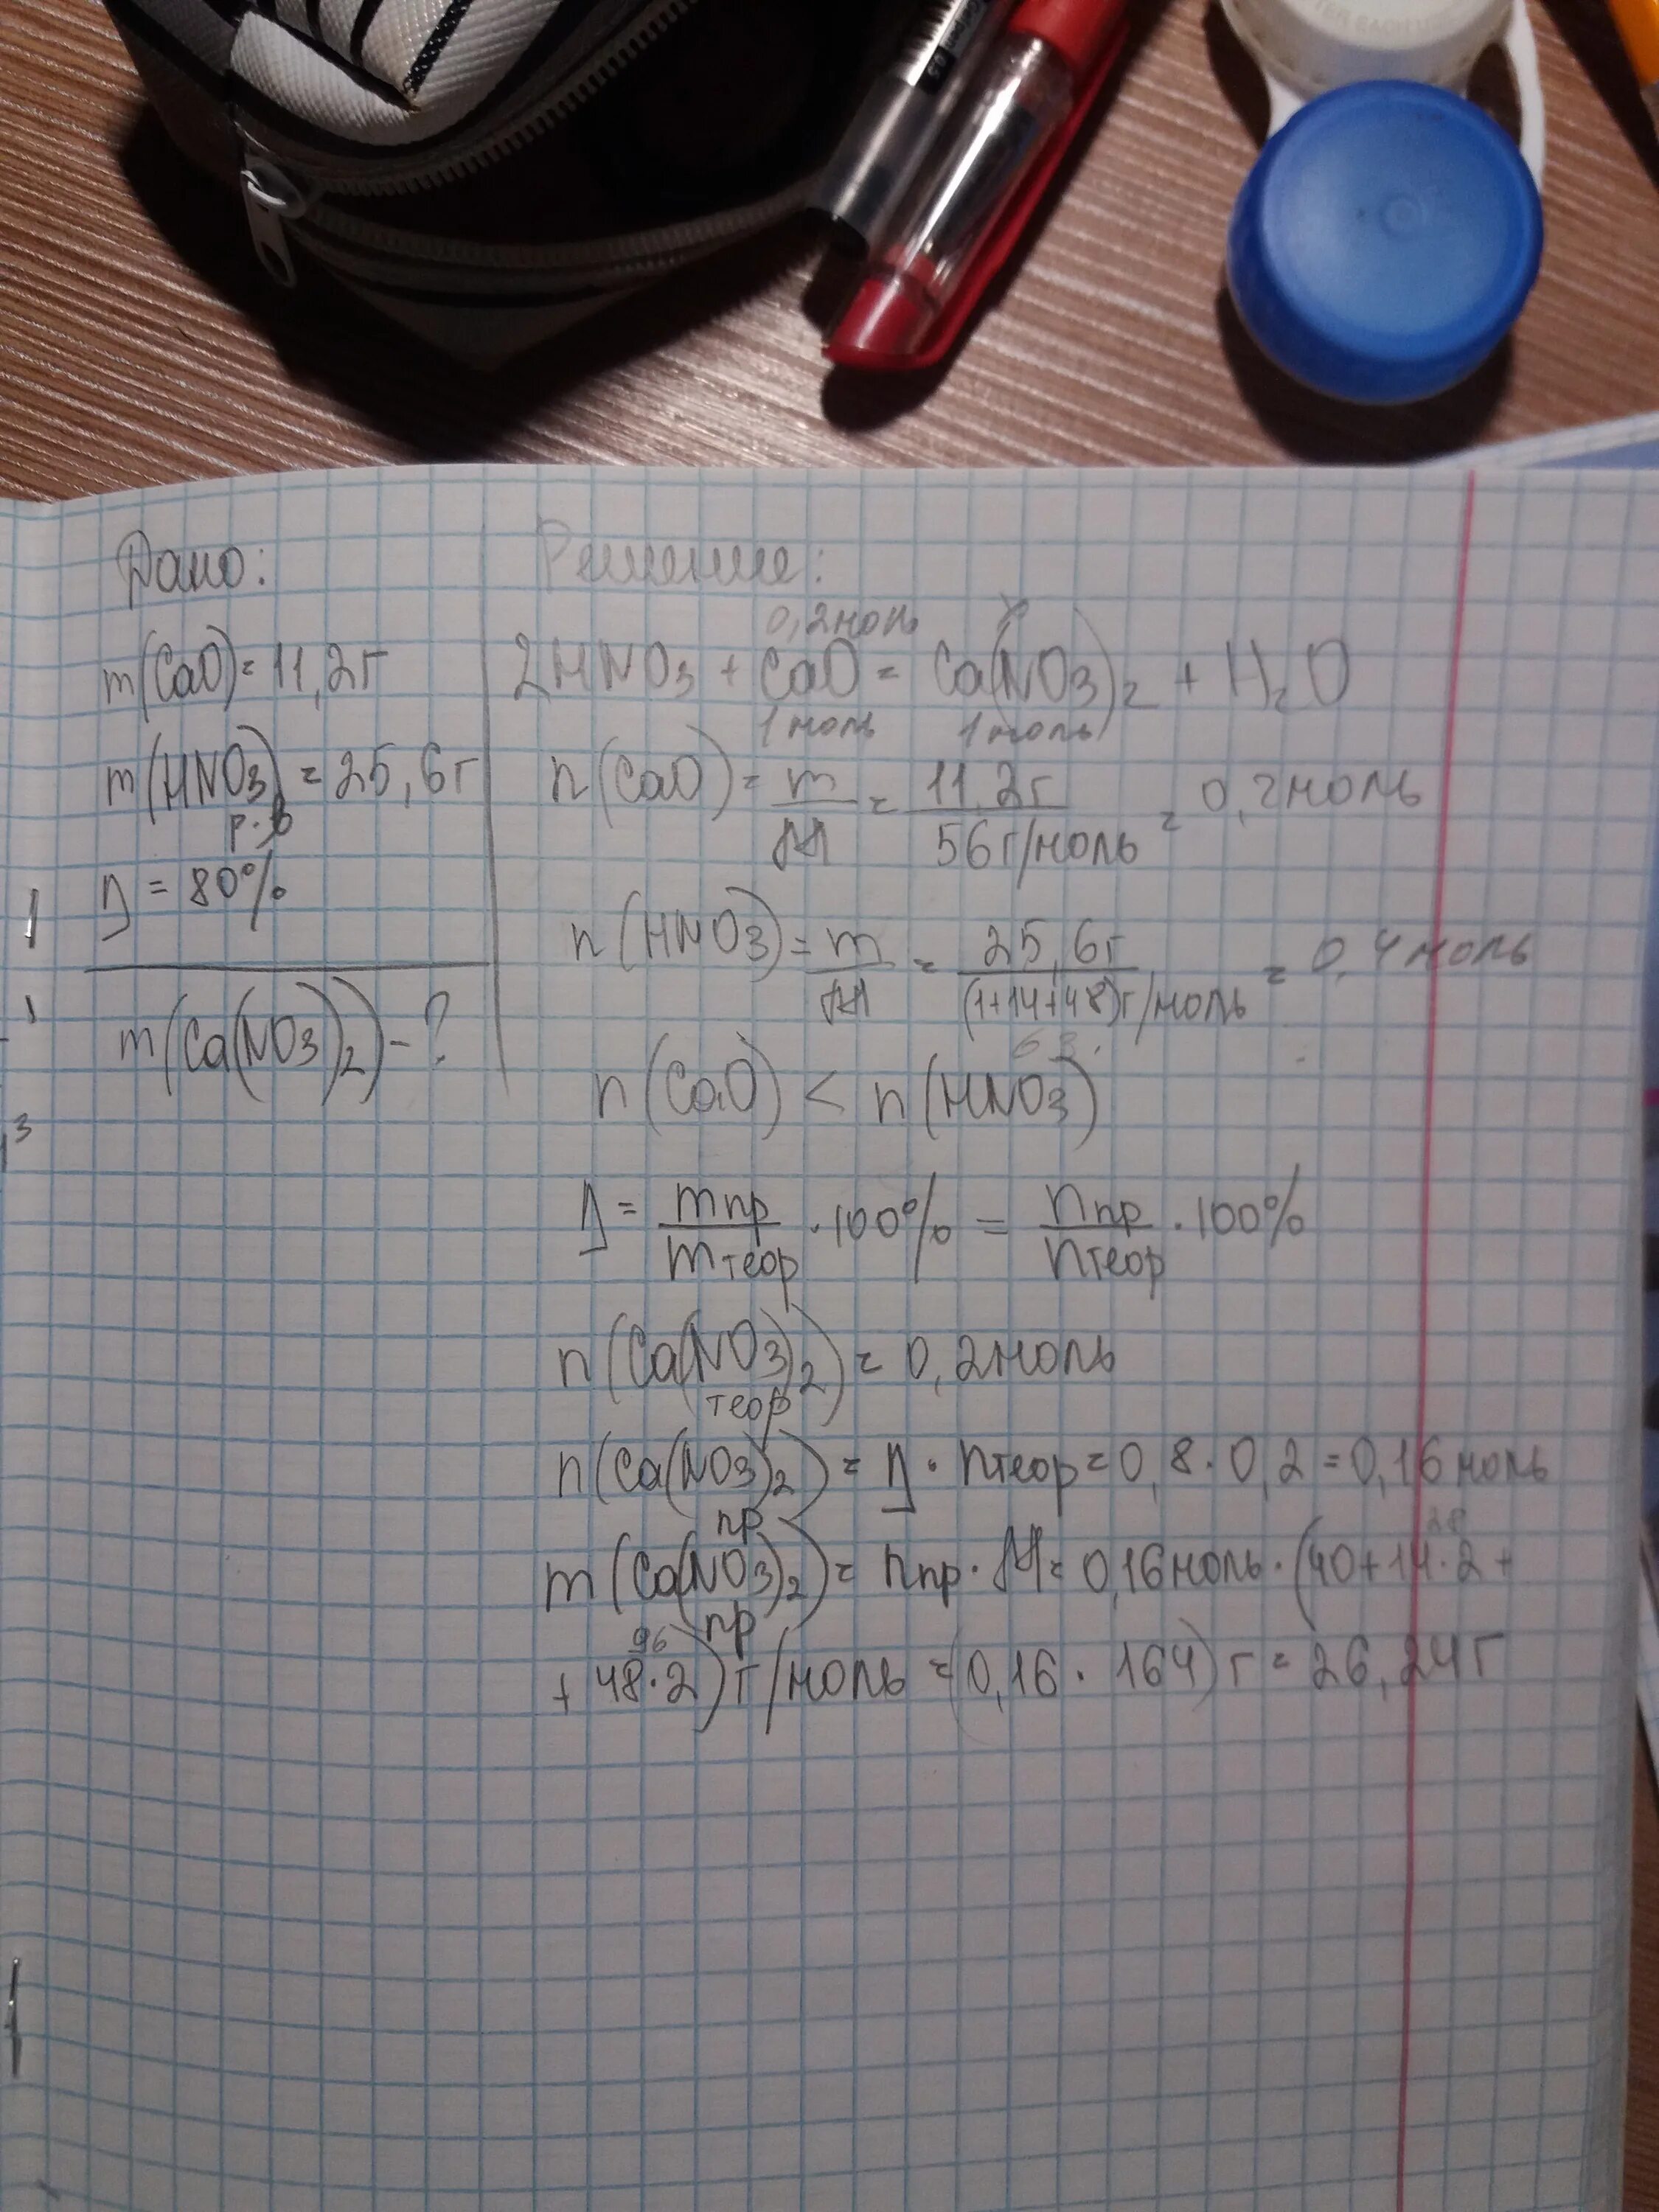 Дано:
m(CaO)=11,2г
m(HNO3)=25,6г
р-в
η=80%
m(Ca(NO3)2)-?
Решение:
0,2моль x
2HNO3+CaO=Ca(NO3)2+H2O
1моль 1моль
n(CaO)=m/M=11,2г/56г/моль=0,2моль
n(HNO3)=m/M=25,6г/(1+14+48)г/моль=0,4моль
63
n(CaO)<n(HNO3)
η=mпр/mтеор·100%=nпр/nтеор·100%
n(Ca(NO3)2)=0,2моль
теор
n(Ca(NO3)2)=η·nтеор=0,8·0,2=0,16моль
пр
28
m(Ca(NO3)2)=nпр·M=0,16моль·(40+14·2+
пр
96
+48·2)г/моль=(0,16·164)г=26,24г